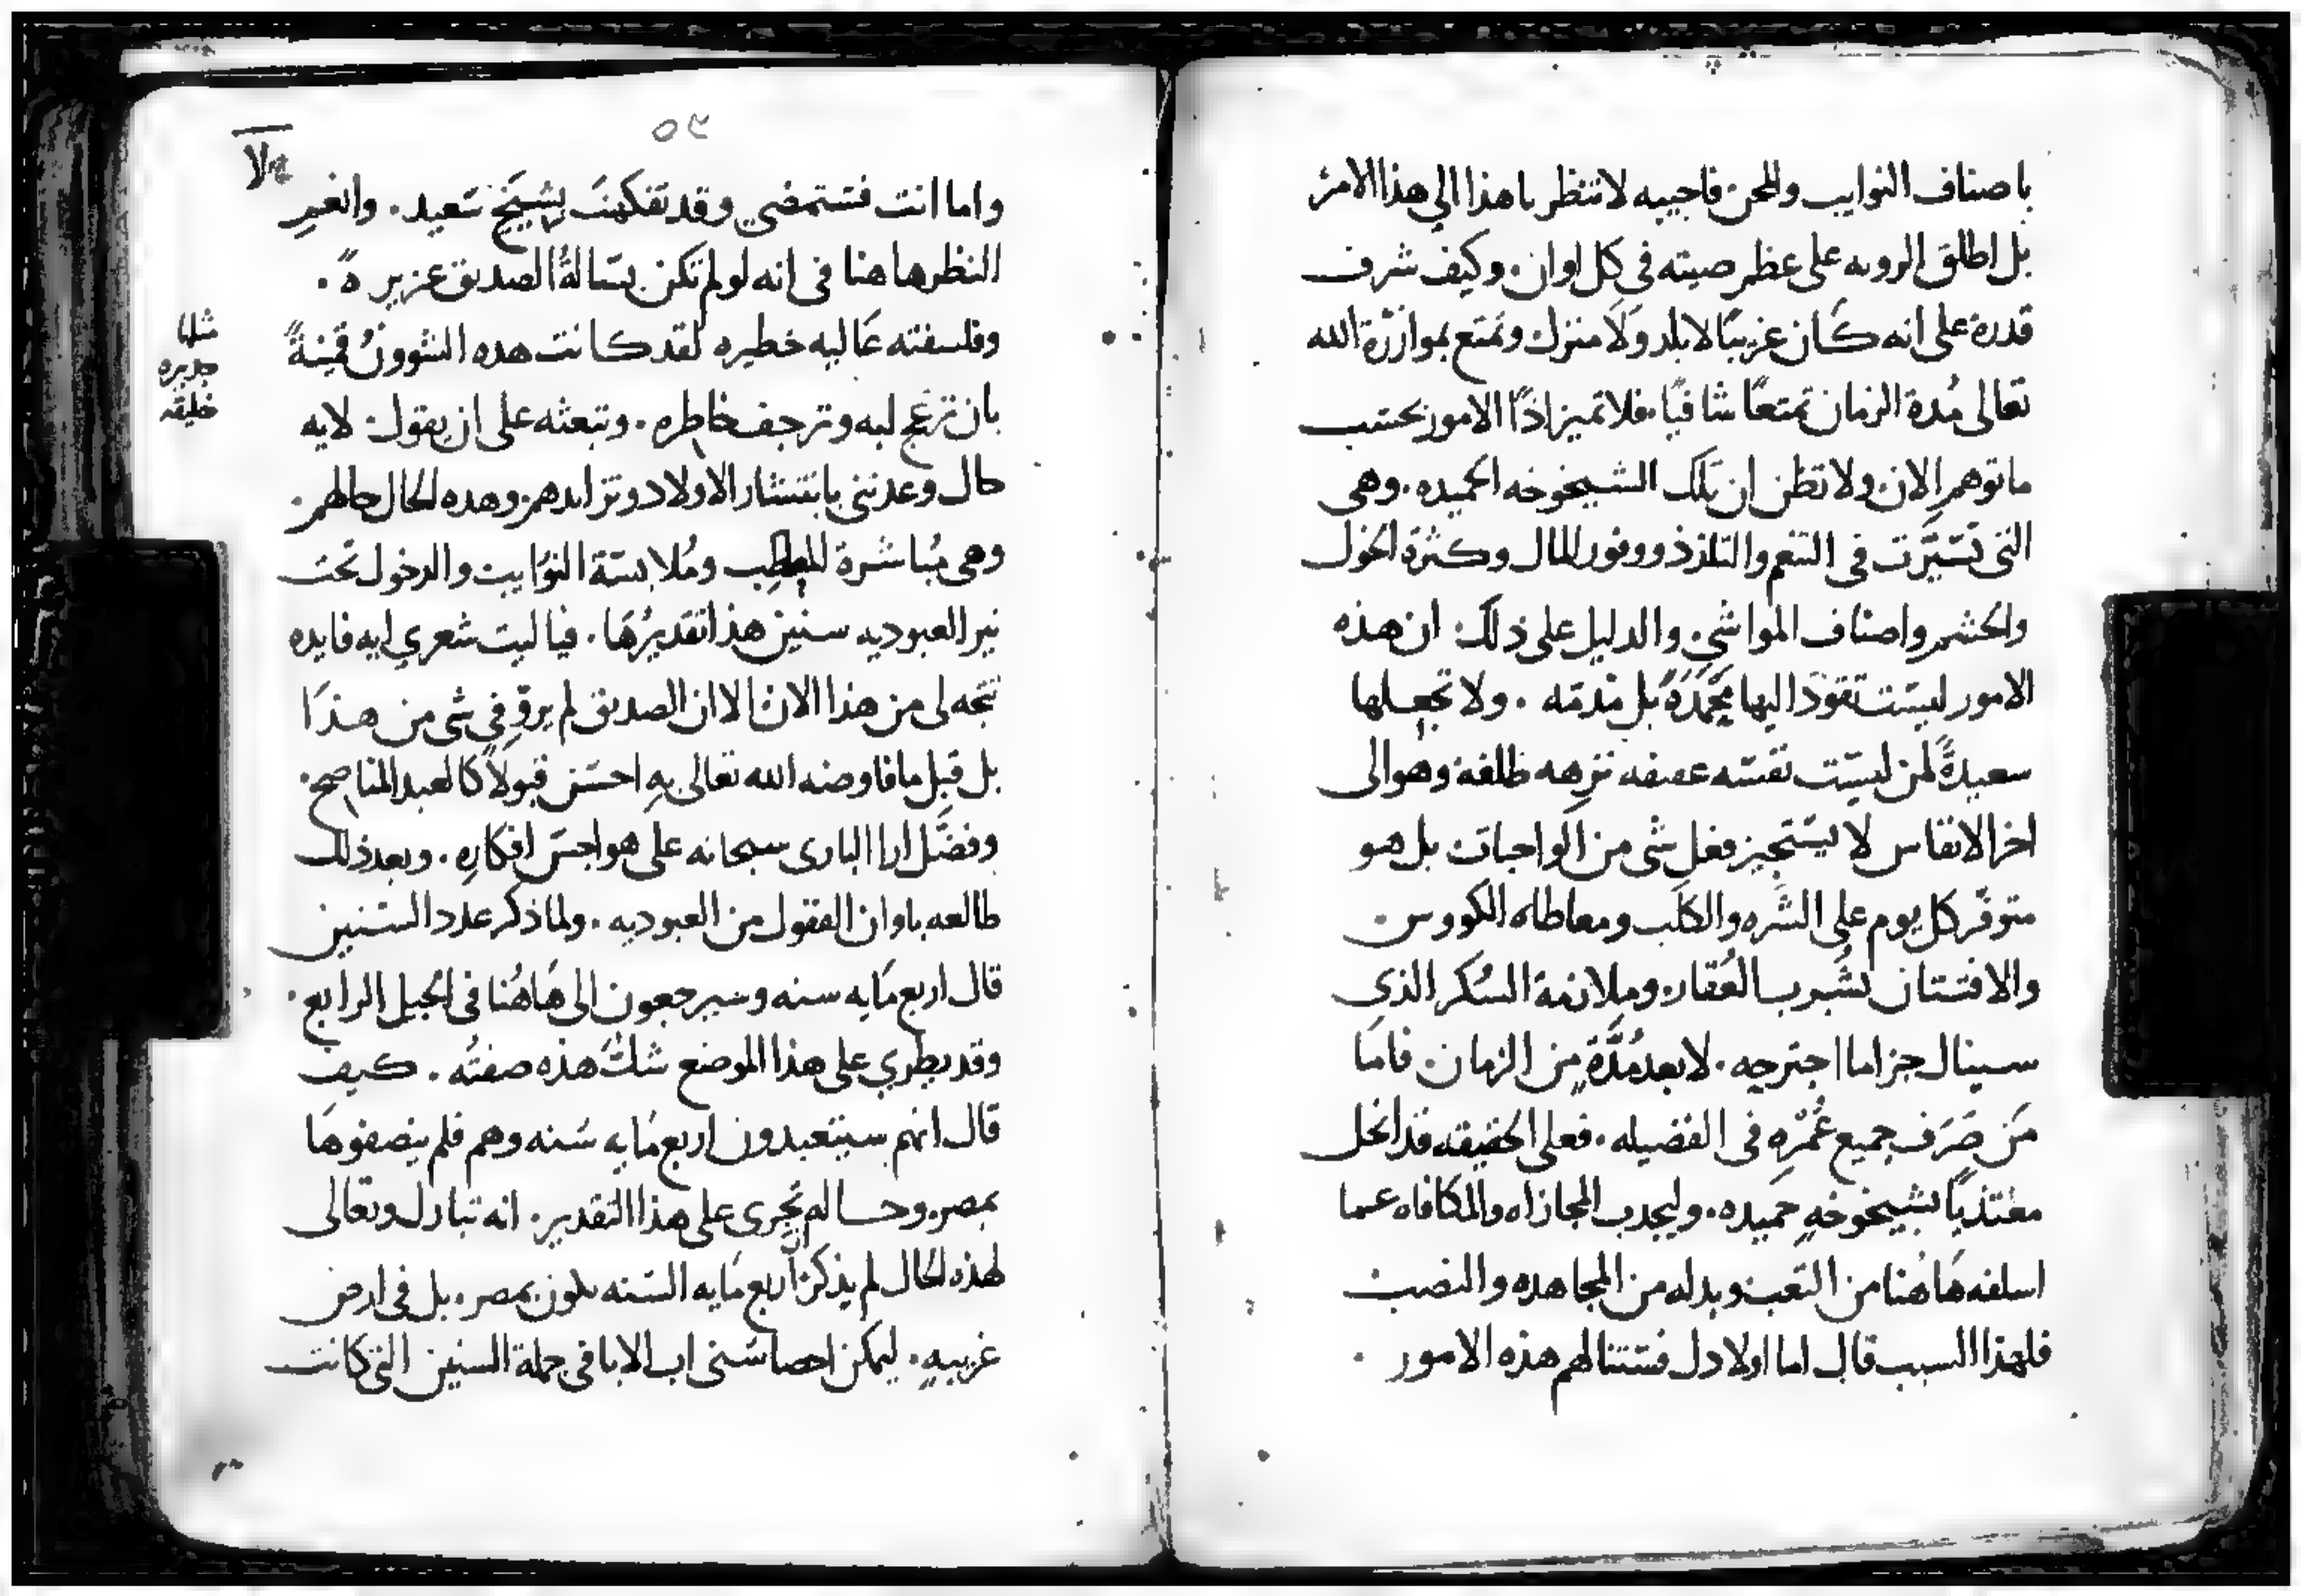 باصناف النوايب والمحن. فاجيبه لاتنظر ياهذا الي هذا الامر
بل اطلق الرويه على عظم صيته في كل اوان. وكيف شرف
قدره على انه كان غريبًا لابلد ولا منزل وتمتع بموازرة الله
تعالى مُدة الزمان تمتعًا شافيًا. فلا تميز اذًا الامور بحسب
ما توهم الان. ولا تظن ان تلك الشيخوخه الحميده. وهي
التي تسيرت في التنعم والتلذذ ووفور المال وكثرة الخول
والحشم واصناف المواشي. والدليل على ذلك ان هذه
الامور ليست تقود اليها محمدَةً بل مذمّه. ولا تجعلها
سعيدةً لمن ليست نفسه عفيفه نزهه ظلفة وهو الى
اخر الانفاس لا يستجيز فعل شي من الواجبات بل هو
متوفّر كل يوم على الشره والكلَب ومعاطاه الكووس.
والافتتان بشرب العُقار. وملازمة السُكر الذي
سينال جزاما اجترحه. لابعد مُدَّةٍ من الزمان. فاما
مَن صَرَف جميع عُمْرِهِ في الفضيله. فعلى الحقيقه قد انحل
مغتذيًا بشيخوخهٍ حميده. وليجدب المجازاه والمكافاه عما
اسلفه هاهُنا من التعب وبدله من المجاهده والنصب
فلهذا السبب قال اما اولادك فستنالهم هذه الامور.
٥٢
واما انت فستمضي وقد تفكهنت بشيَخٍ سَعيد. وانعم
النظر هاهنا في انه لو لم تكن بسالةُ الصديق عزيرةً.
وفلسفته عَاليه خطيره لقد كانت هده الشوونُ قمينةً
مثلها
جديره
خليقه
بان تزعج لبه وترجف خاطره. وتبعثه على ان يقول. لايه
حال وعدتني بانتشار الاولاد وتزايدهم. وهده الحال حالهم.
وهي مُباشرة المعطب ومُلابسَة النوايب والدخول تحت
نير العبوديه سنين هذا تقديرُهَا. فيا ليت شعري ايه فايده
تتجه لى من هذا الان. الا ان الصديق لم يروّ في شي من هذا
بل قبِل ما فاوضه الله تعالى بهِ احسَن قبولاً كالعبد المناصح.
وفضَّل ارا البارى سبحانه على هواجسَ افكارِه. وبعد ذلك
طالعه باوان القفول من العبوديه. ولما ذكر عدد السّنين
قال اربع مَايه سنه وسيرجعون الى هَاهُنا في الجيل الرابع.
وقد يطري على هذا الموضع شكٌ هذه صفتُه. كيف
قال انهم سيتعبدون اربع مُايه سَنه وهم فلم ينصفوهَا
بمصر. وحالهم تجرى على هذا التقدير. انه تبارك وتعالى
لهذه الحال لم يذكر اربع مَايه السّنه تكون بمصر. بل في ارض
غريبهٍ. ليمكن احصا سَنى اب الابا في جملة السنين التي كانت